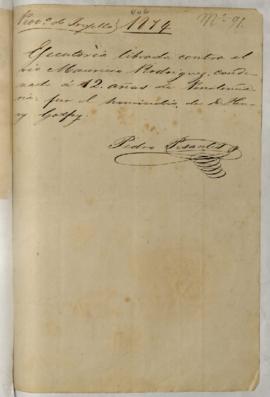 Prov.ª de Trujillo 1874. Nº 91.
Ejecutoria librada contra el
reo Mauricio Rodriguez, conde-
nado á 12 años de Penitencia-
ria, por el homicidio de D. Hen-
ry Godfry.
Pedro